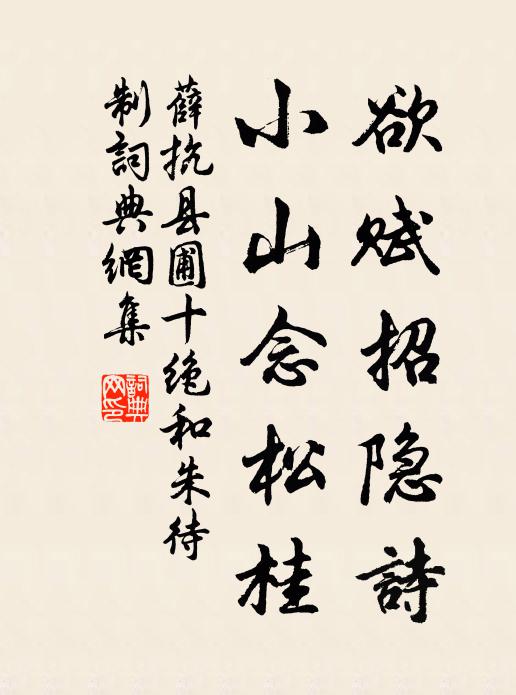 欲赋招隐詩
小山念松桂
薛抗县圃十绝和朱待
制詞典網集
詞典網印